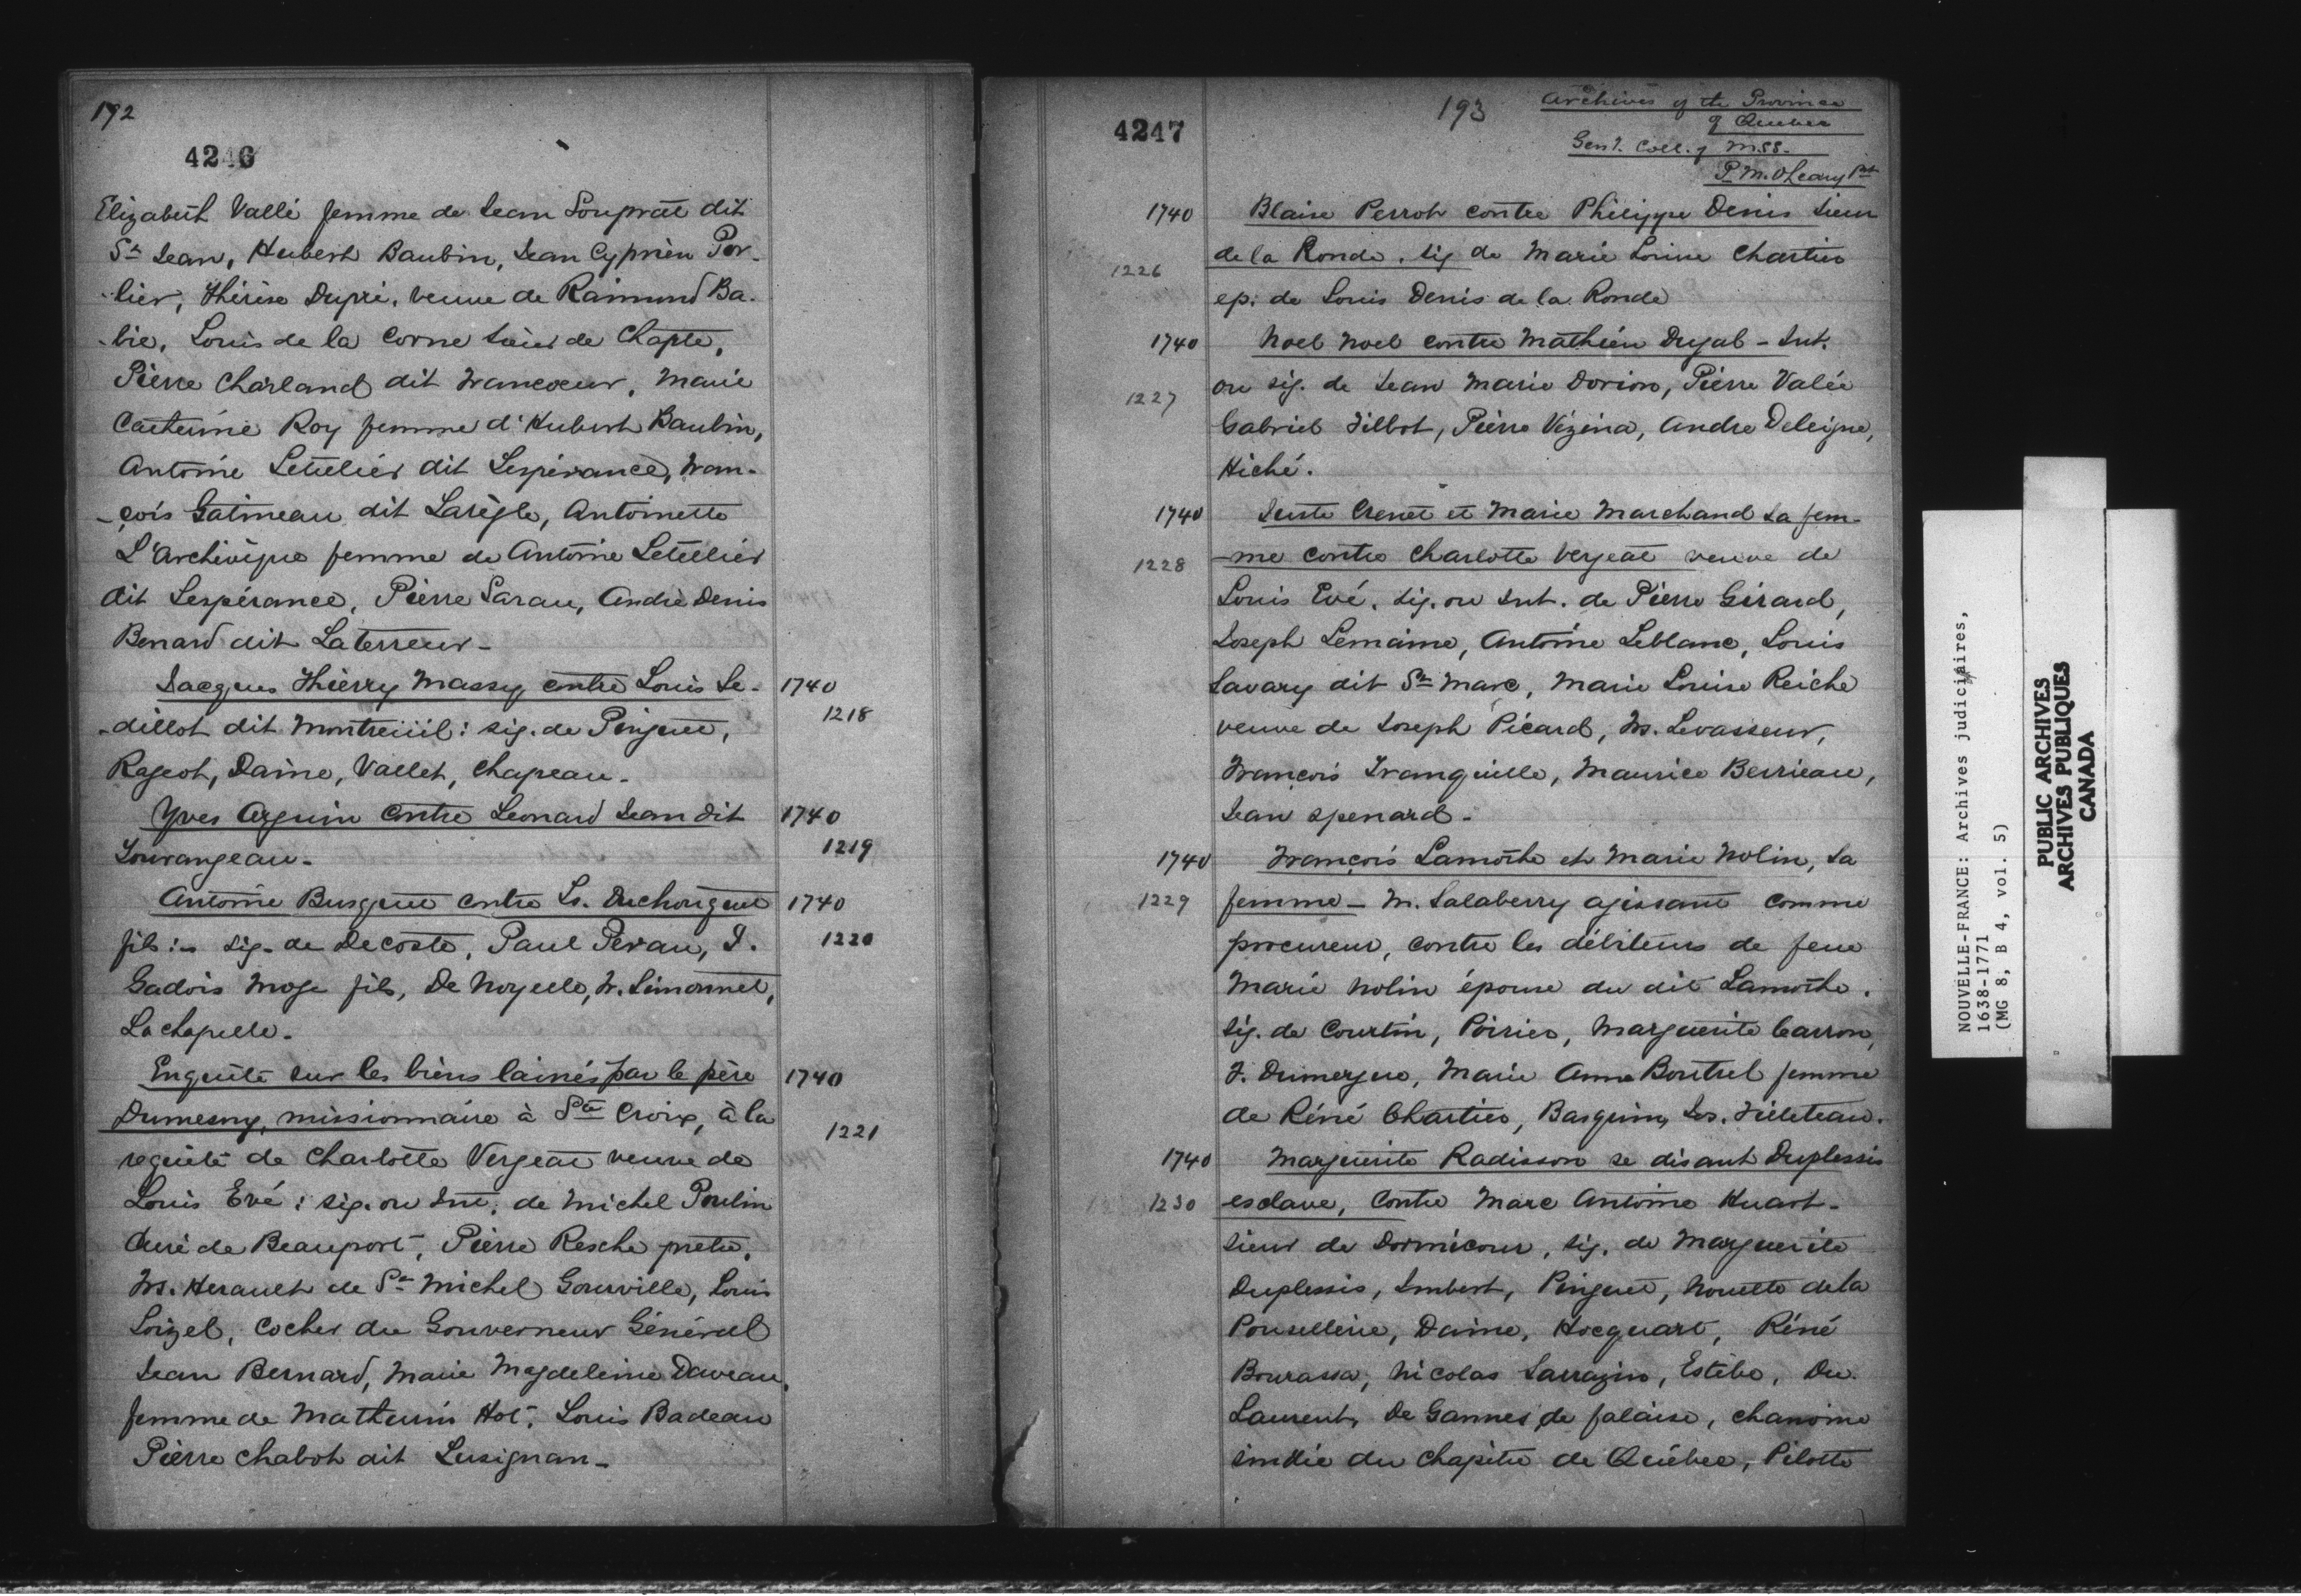 192
4246
Elizabeth Vallé femme de Jean Souprat dit
St Jean, Hubert Baubin, Jean Cyprien Por-
-lier, Thérèse Dupré, veuve de Raimond Ba-
-bie, Louis de la Corne Sieur de Chapte,
Pierre Charland dit Francoeur, Marie
Catherine Roy femme d'Hubert Baubin,
Antoine Letellier dit Lespérance, Fran-
-çois Gatineau dit Larègle, Antoinette
L'Archivêque femme de Antoine Letellier
dit Lespérance, Pierre Sarau, André Denis
Benard dit Laterreur -
Jacques Thierry Massy contre Louis Se- 1740
-dillot dit Montreüil: sig. de Pinguet, 1218
Rageot, Daine, Vallet, Chapeau -
Yves Arguin contre Leonard Jean dit 1740
Tourangeau - 1219
Antoine Busquet contre Ls. Duchouquet 1740
fils: sig. de Decoste, Paul Pevau, J. 1220
Gadois Moge fils, De Noyelle, F. Simonnet,
Lachapelle -
Enquête sur les biens lainés par le père 1740
Dumesny, missionnaire à Ste Croix, à la 1221
requête de Charlotte Vergeat veuve de
Louis Evé: sig. ou int. de Michel Poulin
Curé de Beauport, Pierre Resche prêtre,
Frs. Herault de St Michel Gourville, Louis
Loizel, cocher du Gouverneur Général
Jean Bernard, Marie Magdeleine Daveau,
femme de Mathurin Hot, Louis Badeau
Pierre Chabot dit Lusignan -
193
4247
Archives of the Province
of Quebec
Genl. Coll. of MSS.
P. M. O'Leary Pst
1740 Blaise Perrot contre Philippe Denis sieur
1226 de la Ronde, sig de Marie Louise Chartier
ep. de Louis Denis de la Ronde
1740 Noel Noel contre Mathieu Dugab - Int.
1227 ou sig. de Jean Marie Dorion, Pierre Valée
Gabriel Filbot, Pierre Vézina, Andre Deleigne,
Hiché.
1740 Juste Crenet et Marie Marchand sa fem-
1228 -me contre Charlotte Vergeat veuve de
Louis Evé. sig. ou int. de Pierre Gérard,
Joseph Lemaine, Antoine Leblanc, Louis
Savary dit St Marc, Marie Louise Reiche
veuve de Joseph Picard, Frs. Levasseur,
François Tranquille, Maurice Berrieau,
Jean Spenard -
1740 François Lamothe et Marie Nolin, sa
1229 femme - M. Salaberry agissant comme
procureur, contre les débiteurs de feue
Marie Nolin épouse du dit Lamothe.
sig. de Courtin, Poirier, Marguerite Carron,
F. Dumergue, Marie Anne Boutrel femme
de Réné Chartier, Basquin, Jos. Filleteau.
1740 Marguerite Radisson se disant Duplessis
1230 esclave, contre Marc Antoine Huart -
sieur de Dormicour, sig. de Marguerite
Duplessis, Imbert, Pinguet, Nouette de la
Poufellerie, Daine, Hocquart, Réné
Bourassa, Nicolas Sarrazin, Estèbe, Du
Laurent, De Gannes de falaise, chanoine
sindic du chapitre de Québec, Pilotte
NOUVELLE-FRANCE: Archives judiciaires,
1638-1771
(MG 8, B 4, vol. 5)
PUBLIC ARCHIVES
ARCHIVES PUBLIQUES
CANADA